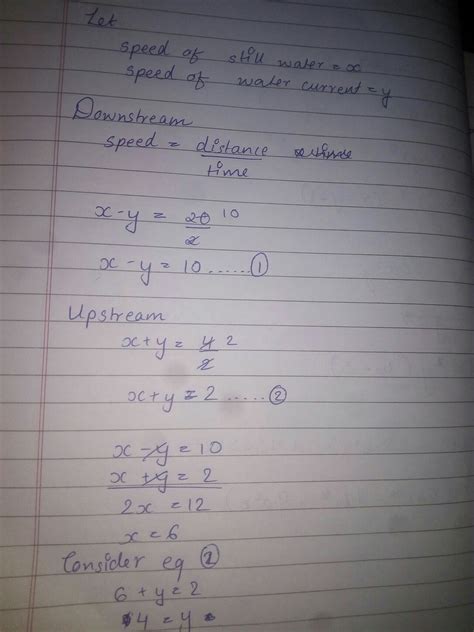 Let
speed of still water = x
speed of water current = y
Downstream
speed = distance
time
x - y = 20 10
2
x - y = 10 ...... ①
Upstream
x + y = 4 2
2
x + y = 2 ..... ②
x - y = 10
x + y = 2
2x = 12
x = 6
Consider eq ②
6 + y = 2
4 = y